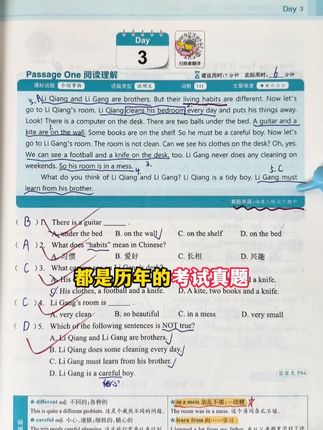 Day 3
Day
3
扫我看翻译
Passage One 阅读理解
建议用时:7分钟 实际用时: 6 分钟
课标话题 介绍事物 语篇类型 说明文 词数 141 文章难度
3.A Li Qiang and Li Gang are brothers. But their living habits are different. Now let's
go to Li Qiang's room. Li Qiang cleans his bedroom every day and puts his things away.
Look! There is a computer on the desk. There are two balls under the bed. A guitar and a
kite are on the wall. Some books are on the shelf. So he must be a careful boy. Now let's
go to Li Gang's room. You can't clean the room. Can we see his clothes on the desk? Oh, yes.
We can see a football and a knife on the desk, too. Li Gang never does any cleaning on
weekends. So his room is in a mess. 4. 3. 5.C
What do you think of Li Qiang and Li Gang? Li Qiang is a tidy boy. Li Gang must
learn from his brother.
真题来源:
( B ) 1. There is a guitar
A. under the bed B. on the wall C. on the shelf D. on the bed
( A ) 2. What does "habits" mean in Chinese?
A. 习惯 B. 爱好 C. 长相 D. 兴趣
都是历年的考试真题
( C ) 4. Li Gang's room is
A. very clean B. so beautiful C. in a mess D. very small
( D ) 5. Which of the following sentences is NOT true?
A. Li Qiang and Li Gang are brothers.
B. Li Qiang does some cleaning every day.
C. Li Gang must learn from his brother.
D. Li Gang is a careful boy.
细心
答案见 P94
different adj. 不同的;各种的
This is quite a different problem. 这是个截然不同的问题。
careful adj. 小心;谨慎;细致的,精心的
in a mess 杂乱不堪;一团糟
The room was in a mess. 这个房间杂乱不堪。
learn from 向……学习